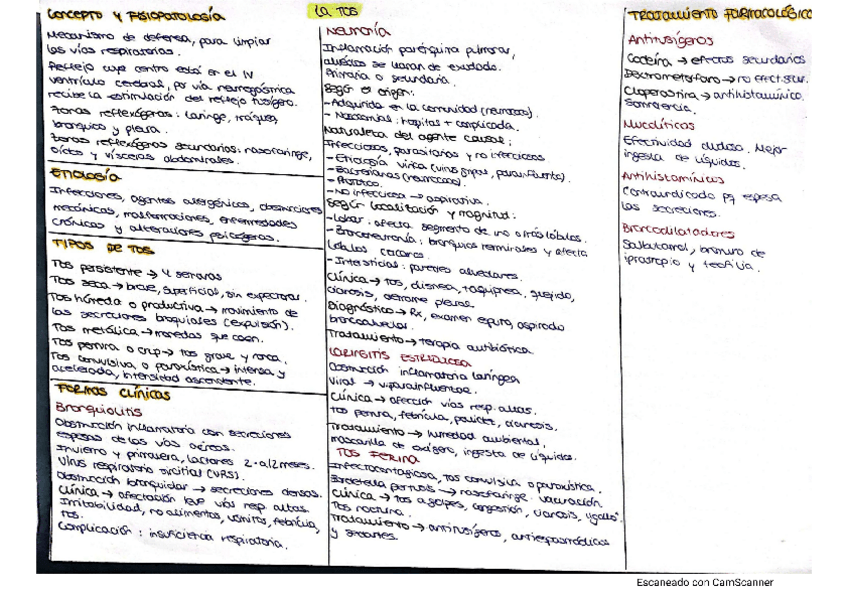 La TOS
Concepto y Fisiopatología
Mecanismo de defensa, para limpiar
las vías respiratorias.
Reflejo cuyo centro está en el IV
ventrículo cerebral, por vía
recibe la estimulación del reflejo tusígeno.
Zonas reflexógenas: laringe, tráquea,
bronquios y pleura.
Zonas reflexógenas secundarias: nasofaringe,
oídos y vísceras abdominales.
Etiología
Infecciones, agentes alergénicos, obstrucciones
mecánicas, malformaciones, enfermedades
crónicas y alteraciones psicógenas.
TIPOS DE TOS
Tos persistente → 4 semanas
Tos seca → breve, superficial, sin expectorar.
Tos húmeda o productiva → movimiento de
las secreciones bronquiales (expulsión).
Tos metálica → monedas que caen.
Tos perruna o crup → tos grave y ronca.
Tos convulsiva o paroxística → intensa y
acelerada, intensidad ascendente.
Formas clínicas
Bronquiolitis
Obstrucción inflamatoria con secreciones
espesas de las vías aéreas.
Invierno y primavera, lactantes 2-12 meses.
Virus respiratorio sincitial (VRS).
Obstrucción bronquiolar → secreciones densas.
Clínica → afectación leve vías resp. altas.
Irritabilidad, no alimentos, vómitos, febrícula,
tos.
Complicación: insuficiencia respiratoria.
Neumonía
Inflamación parénquima pulmonar,
alvéolos se llenan de exudado.
Primaria o secundaria.
Según el origen:
- Adquirida en la comunidad (neumococo).
- Nosocomial: hospital + complicada.
Naturaleza del agente causal:
Infecciosas, parasitarias y no infecciosas
- Etiología vírica (virus gripe, parainfluenza).
- Bacterianas (neumococo).
- No infecciosa → aspirativa.
Según localización y magnitud:
- Lobar: afecta segmento de uno o más lóbulos.
- Bronconeumonía: bronquios terminales y afecta
lóbulos cercanos.
- Intersticial: paredes alveolares.
Clínica → tos, disnea, taquipnea, quejido,
cianosis, derrame pleural.
Diagnóstico → Rx, examen esputo, aspirado
broncoalveolar.
Tratamiento → terapia antibiótica.
LARINGITIS ESTRIDULOSA
Obstrucción inflamatoria laríngea
Viral →
Clínica → afección vías resp. altas.
tos perruna, febrícula, palidez, cianosis.
Tratamiento → humedad ambiental,
mascarilla de oxígeno, ingesta de líquidos.
TOS FERINA
Infectocontagiosa, tos convulsiva o paroxística.
Bordetella pertussis → nasofaringe. Vacunación.
Clínica → tos a golpes, congestión, cianosis,
Tos nocturna.
Tratamiento → antitusígenos, antiespasmódicos
y sedantes.
TRATAMIENTO FARMACOLÓGICO
Antitusígenos
Codeína → efectos secundarios
Dextrometorfano → no efect. sec.
Cloperastina → antihistamínico.
Somnolencia.
Mucolíticos
Efectividad dudosa. Mejor
ingesta de líquidos.
Antihistamínicos
Contraindicado pq espesa
las secreciones.
Broncodilatadores
Salbutamol, bromuro de
ipratropio y teofilina.
Escaneado con CamScanner